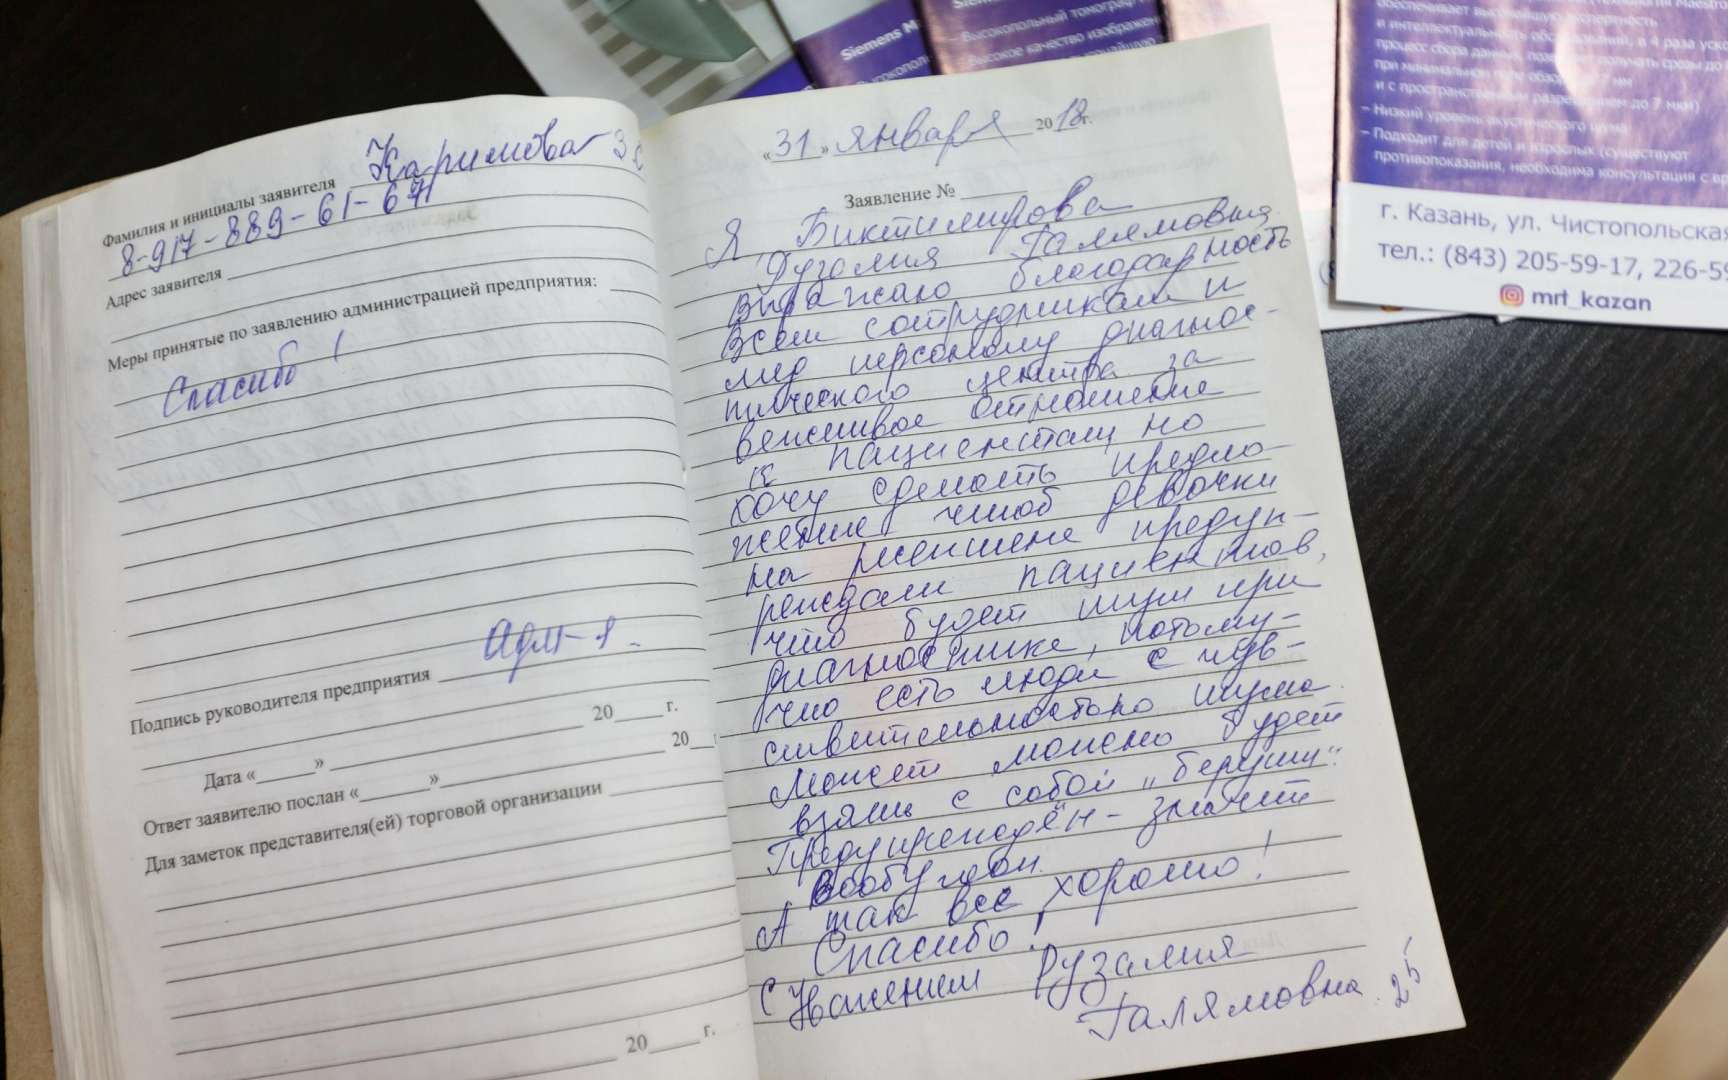 Фамилия и инициалы заявителя Каримова З.С
8-917-889-61-67
Адрес заявителя
Меры принятые по заявлению администрацией предприятия:
Спасибо!
Подпись руководителя предприятия Адм-р.
20 г.
Дата « »
20
Ответ заявителю послан « »
Для заметок представителя(ей) торговой организации
20 г.
«31» января 2018г.
Заявление №
Я, Биктимирова
Рузалия Галямовна
выражаю благодарность
всем сотрудникам и
мед персоналу диагнос-
тического центра за
вежливое отношение
к пациентам но
хочу сделать предло-
жение чтоб девочки
на ресепшене предуп-
реждали пациентов,
что будет шум при
диагностике, потому-
что есть люди с чув-
ствительностью шума
Может можно будет
взять с собой „беруши".
Предупреждён - значит
вооружен.
А так все хорошо!
Спасибо!
С Уважением Рузалия
Галямовна.
Siemens
Высокопольный
Высокое качество изображен
обеспечивает высочайшую экспертность
и интеллектуальность оборудования, в 4 раза
процесс сбора данных, получать срезы до
при минимальном поле обзора мм
и с пространственным разрешением до 7 мкм)
– Низкий уровень акустического шума
– Подходит для детей и взрослых (существуют
противопоказания, необходима консультация с
г. Казань, ул. Чистопольская
тел.: (843) 205-59-17, 226-5
mrt_kazan